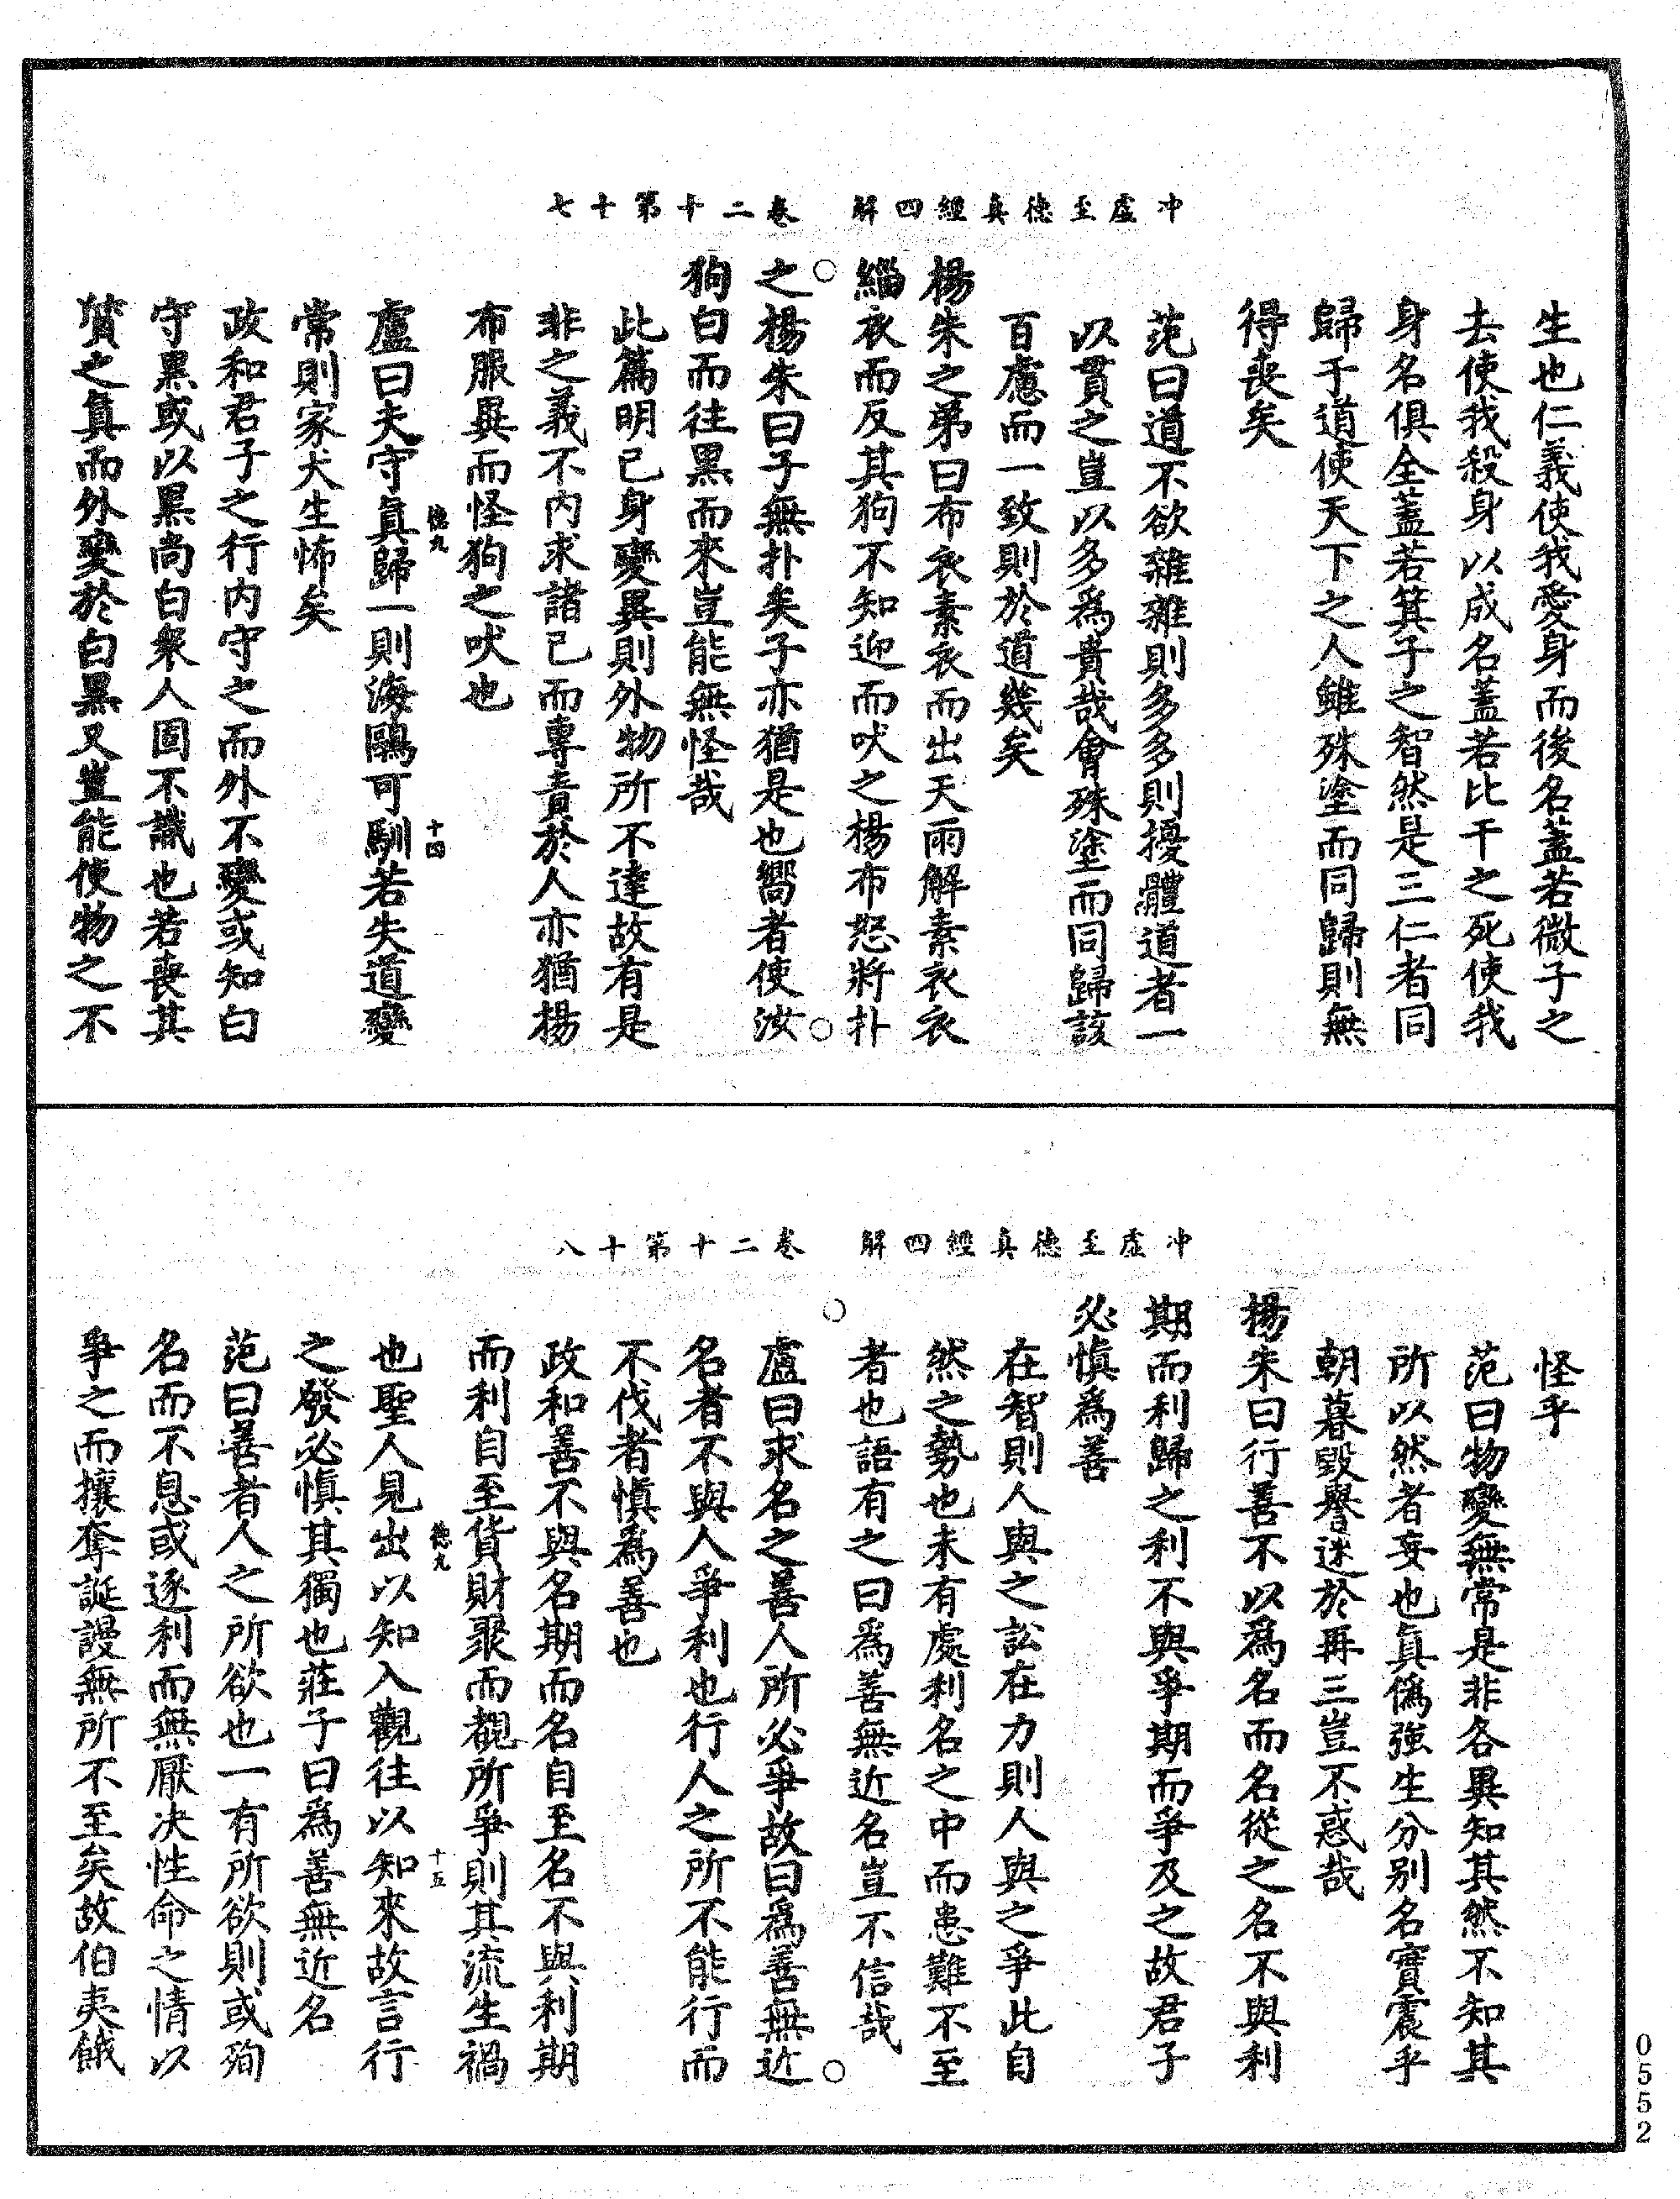 冲虛至德真經四解　卷二十第十七
生也仁義使我愛身而後名蓋若微子之
去使我殺身以成名蓋若比干之死使我
身名俱全蓋若箕子之智然是三仁者同
歸于道使天下之人雖殊塗而同歸則無
得喪矣
范曰道不欲雜雜則多多則擾體道者一
以貫之豈以多為貴哉會殊塗而同歸該
百慮而一致則於道幾矣
楊朱之弟曰布衣素衣而出天雨解素衣衣
緇衣而反其狗不知迎而吠之楊布怒將扑
之楊朱曰子無扑矣子亦猶是也嚮者使汝
狗白而往黑而來豈能無怪哉
此篇明己身變異則外物所不達故有是
非之義不內求諸己而專責於人亦猶楊
布服異而怪狗之吠也
盧曰夫守真歸一則海鷗可馴若失道變
德九　十四
常則家犬生怖矣
政和君子之行內守之而外不變或知白
守黑或以黑尚白眾人固不識也若喪其
質之真而外變於白黑又豈能使物之不
冲虛至德真經四解　卷二十第十八
怪乎
范曰物變無常是非各異知其然不知其
所以然者妄也真偽強生分別名實震乎
朝暮毀譽迷於再三豈不惑哉
楊朱曰行善不以為名而名從之名不與利
期而利歸之利不與爭期而爭及之故君子
必慎為善
在智則人與之訟在力則人與之爭此自
然之勢也未有處利名之中而患難不至
者也語有之曰為善無近名豈不信哉
盧曰求名之善人所必爭故曰為善無近
名者不與人爭利也行人之所不能行而
不伐者慎為善也
政和善不與名期而名自至名不與利期
而利自至貨財聚而覩所爭則其流生禍
德九　十五
也聖人見出以知入觀往以知來故言行
之發必慎其獨也莊子曰為善無近名
范曰善者人之所欲也一有所欲則或殉
名而不息或逐利而無厭決性命之情以
爭之而攘奪誕謾無所不至矣故伯夷餓
0552